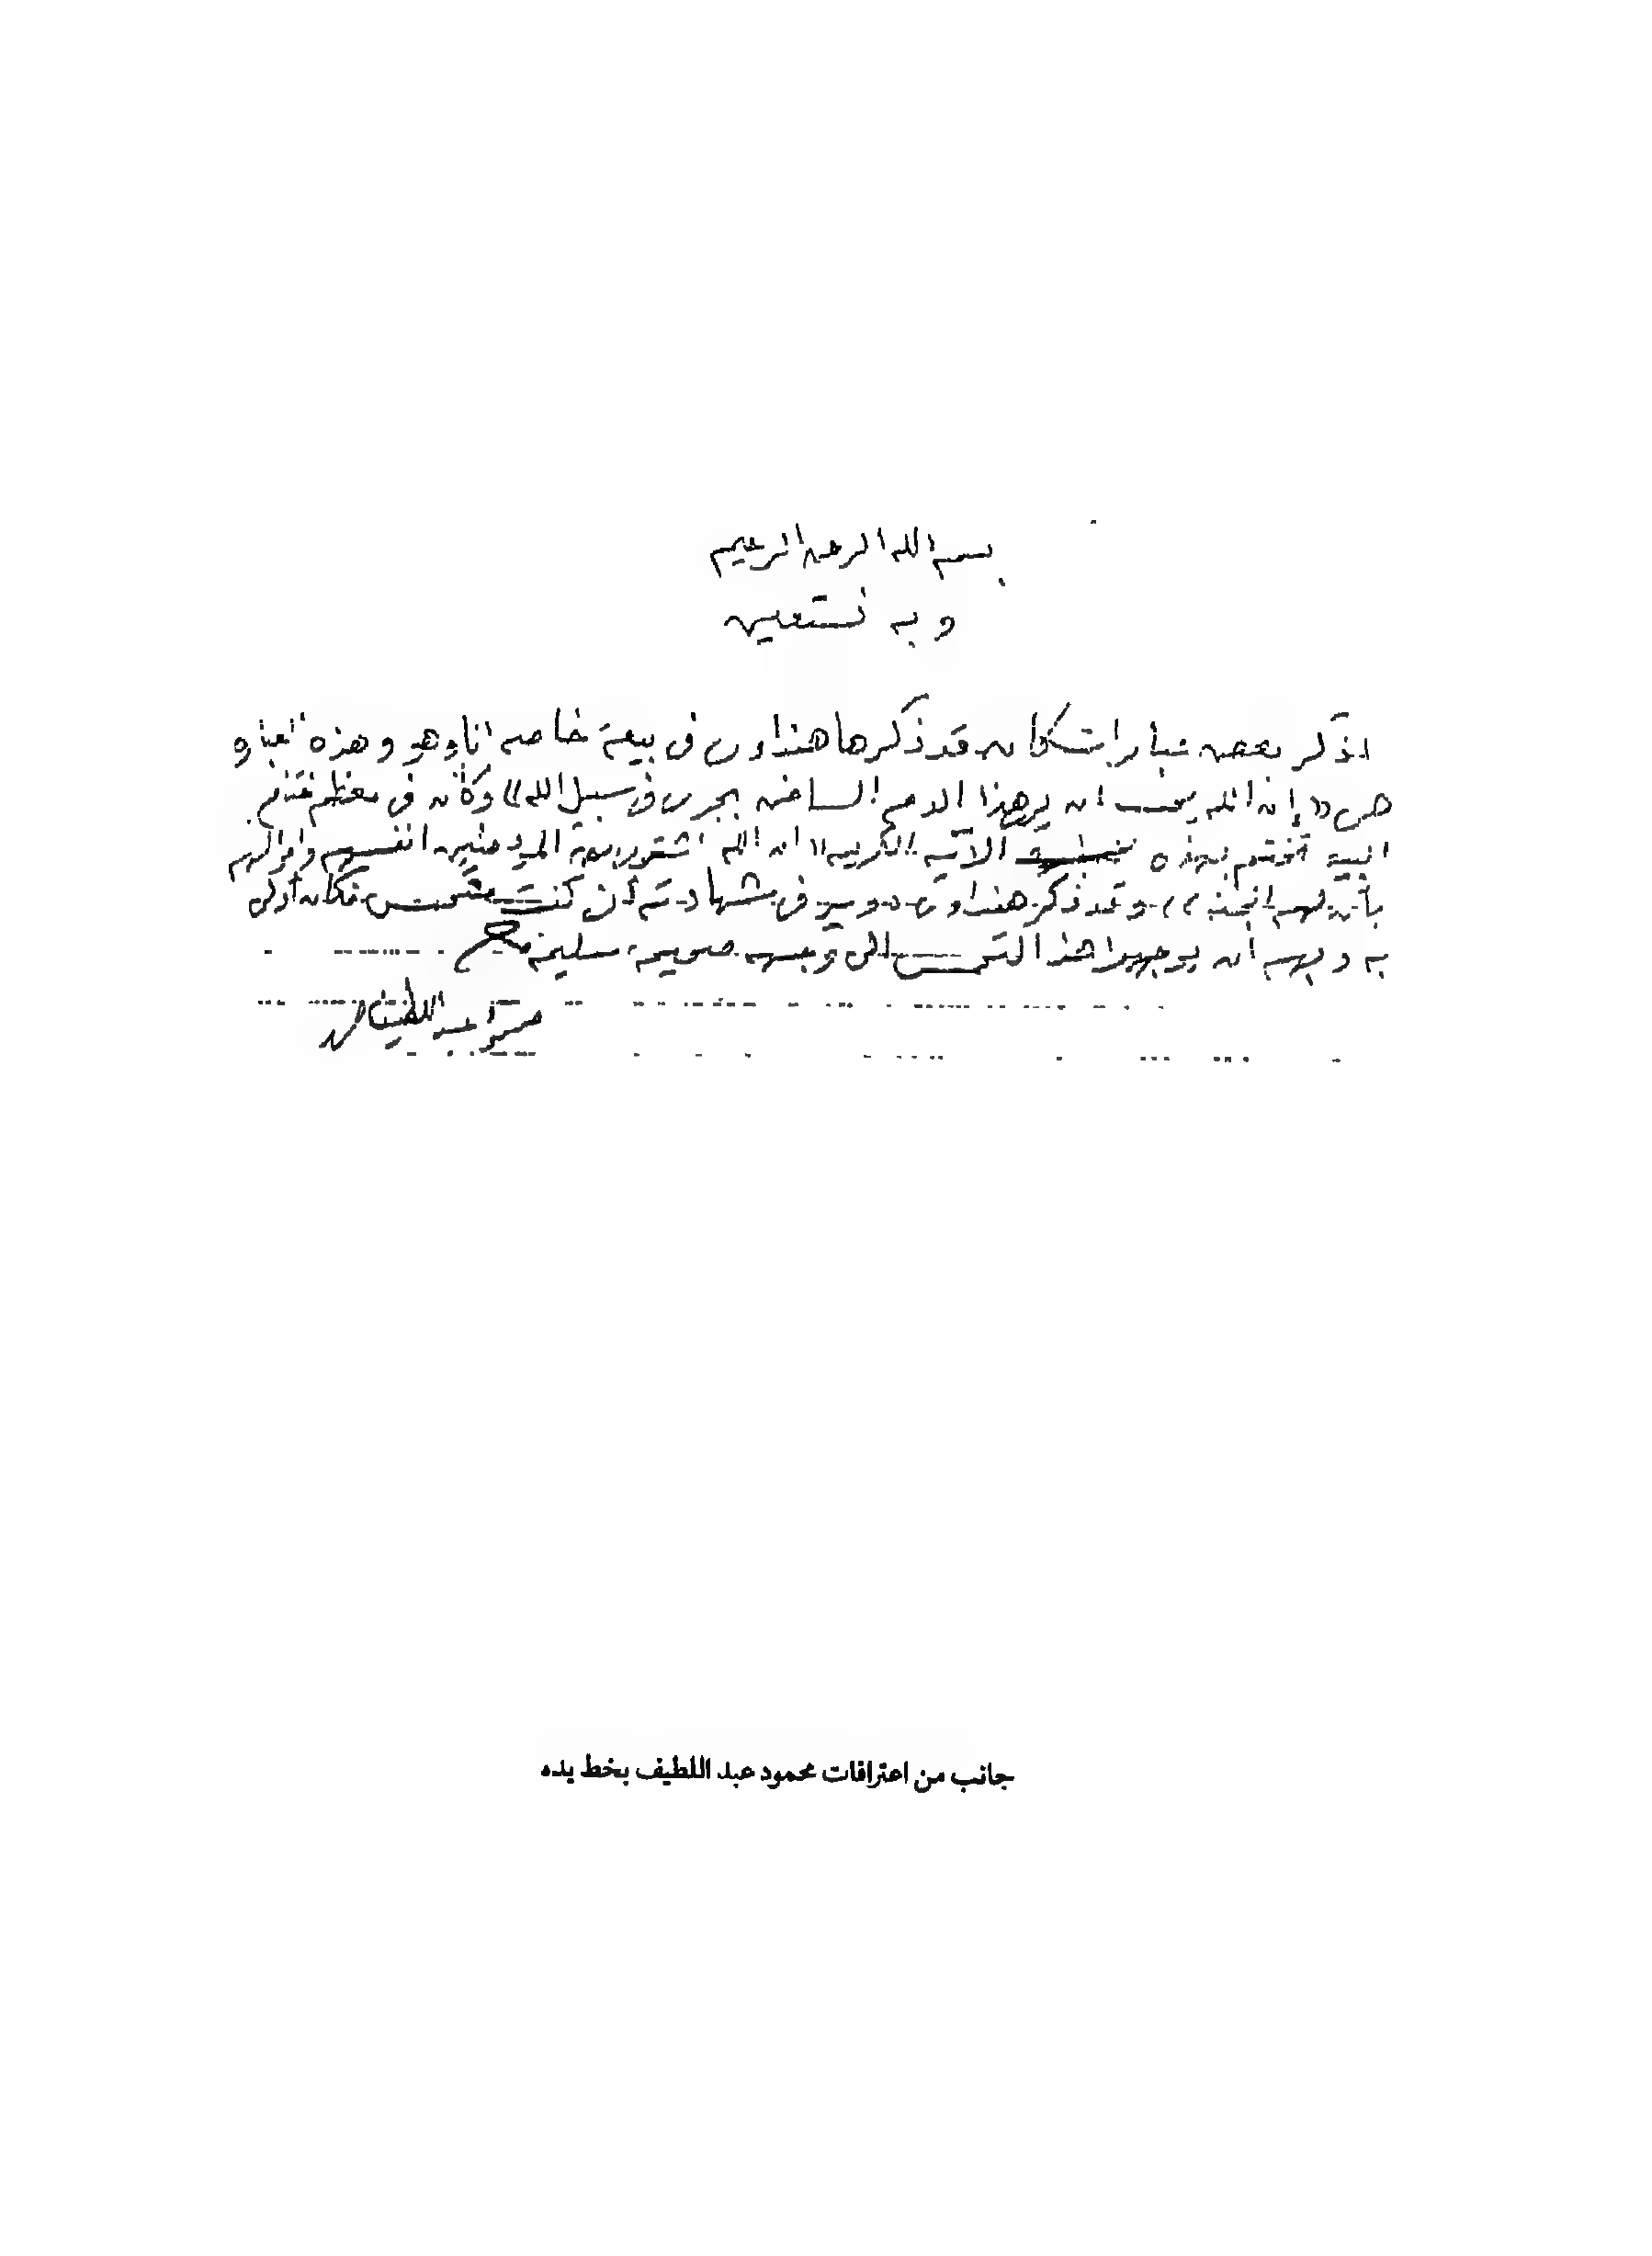 بسم الله الرحمن الرحيم
و به نستعين
اذكر بعض عبارات كان قد ذكرها هنداوى فى بيعة خاصه انا وهو وهذه العباره
هى « إن الله يحب ان يرى هذا الدم الساخن يجرى فى سبيل الله » وكان فى معظم
البيعه تختتم بهذه الآيه الكريمه " ان الله اشترى من المؤمنين انفسهم واموالهم
بأن لهم الجنه " وقد ذكر هنداوى دوير فى شهادته أنى كنت متحمس فكان أولى
به وبهم ان يوجهوا هذا التحمس الى وجهه صحيحه سليمه
محمود عبد اللطيف
جانب من اعترافات محمود عبد اللطيف بخط يده